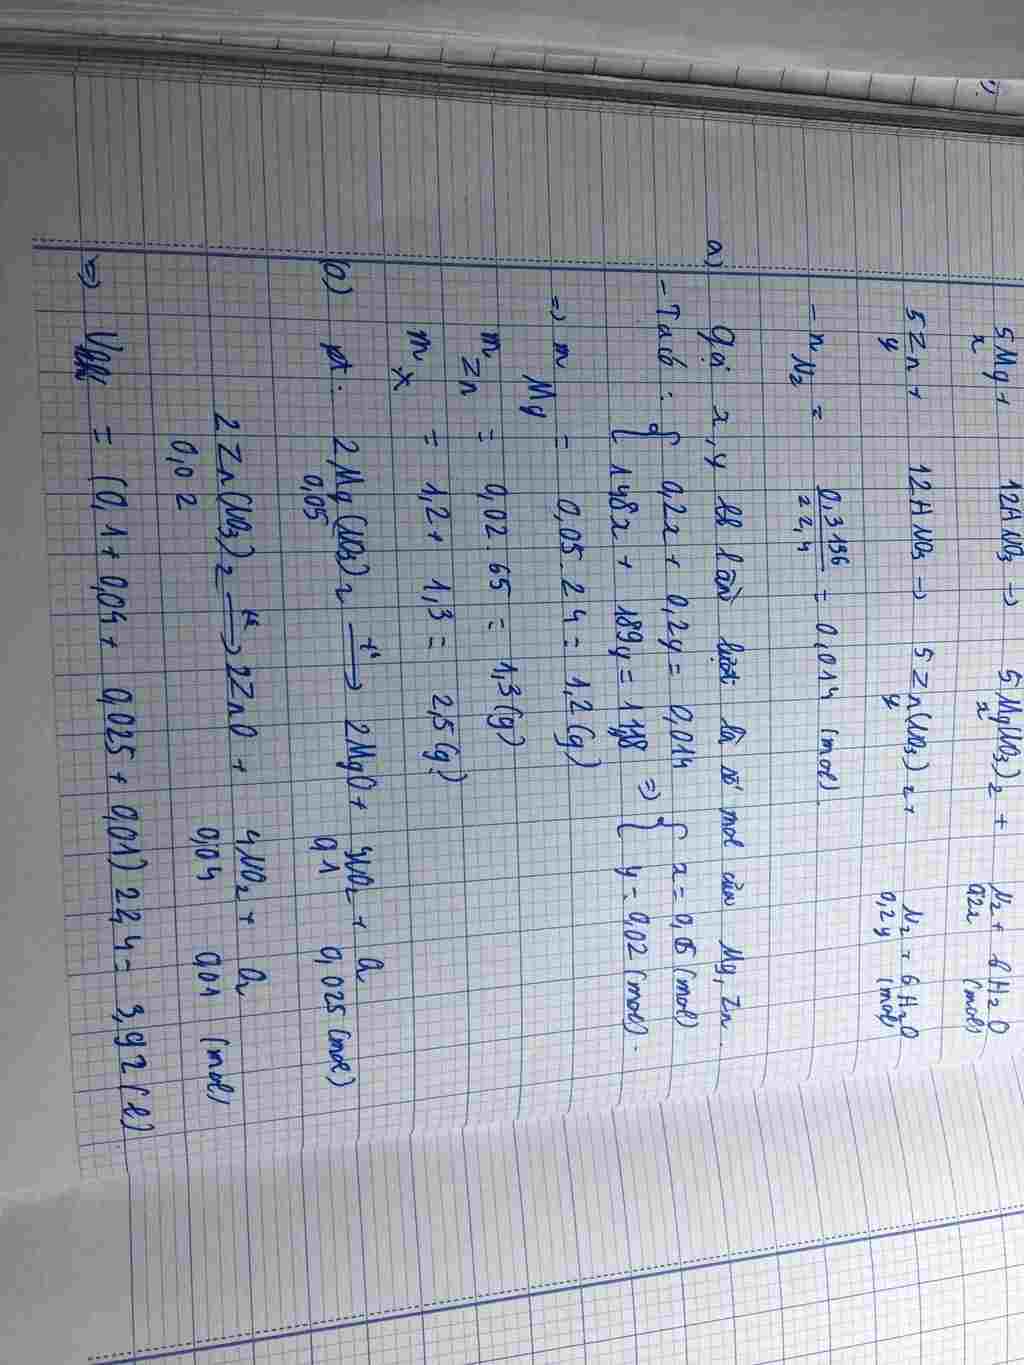 5Mg + 12HNO₃ → 5Mg(NO₃)₂ + N₂ + 6H₂O
x x 0,2x (mol)
5Zn + 12HNO₃ → 5Zn(NO₃)₂ + N₂ + 6H₂O
y y 0,2y (mol)
- nN₂ = 0,3136/22,4 = 0,014 (mol).
a) Gọi x, y lần lượt là số mol của Mg, Zn.
- Ta có: { 0,2x + 0,2y = 0,014 => { x = 0,05 (mol)
148x + 189y = 11,18 y = 0,02 (mol).
=> mMg = 0,05.24 = 1,2 (g)
mZn = 0,02.65 = 1,3 (g)
mX = 1,2 + 1,3 = 2,5 (g)
b) pt: 2Mg(NO₃)₂ t°→ 2MgO + 4NO₂ + O₂
0,05 0,1 0,025 (mol)
2Zn(NO₃)₂ t°→ 2ZnO + 4NO₂ + O₂
0,02 0,04 0,01 (mol)
=> V = (0,1 + 0,04 + 0,025 + 0,01) 22,4 = 3,92 (l)